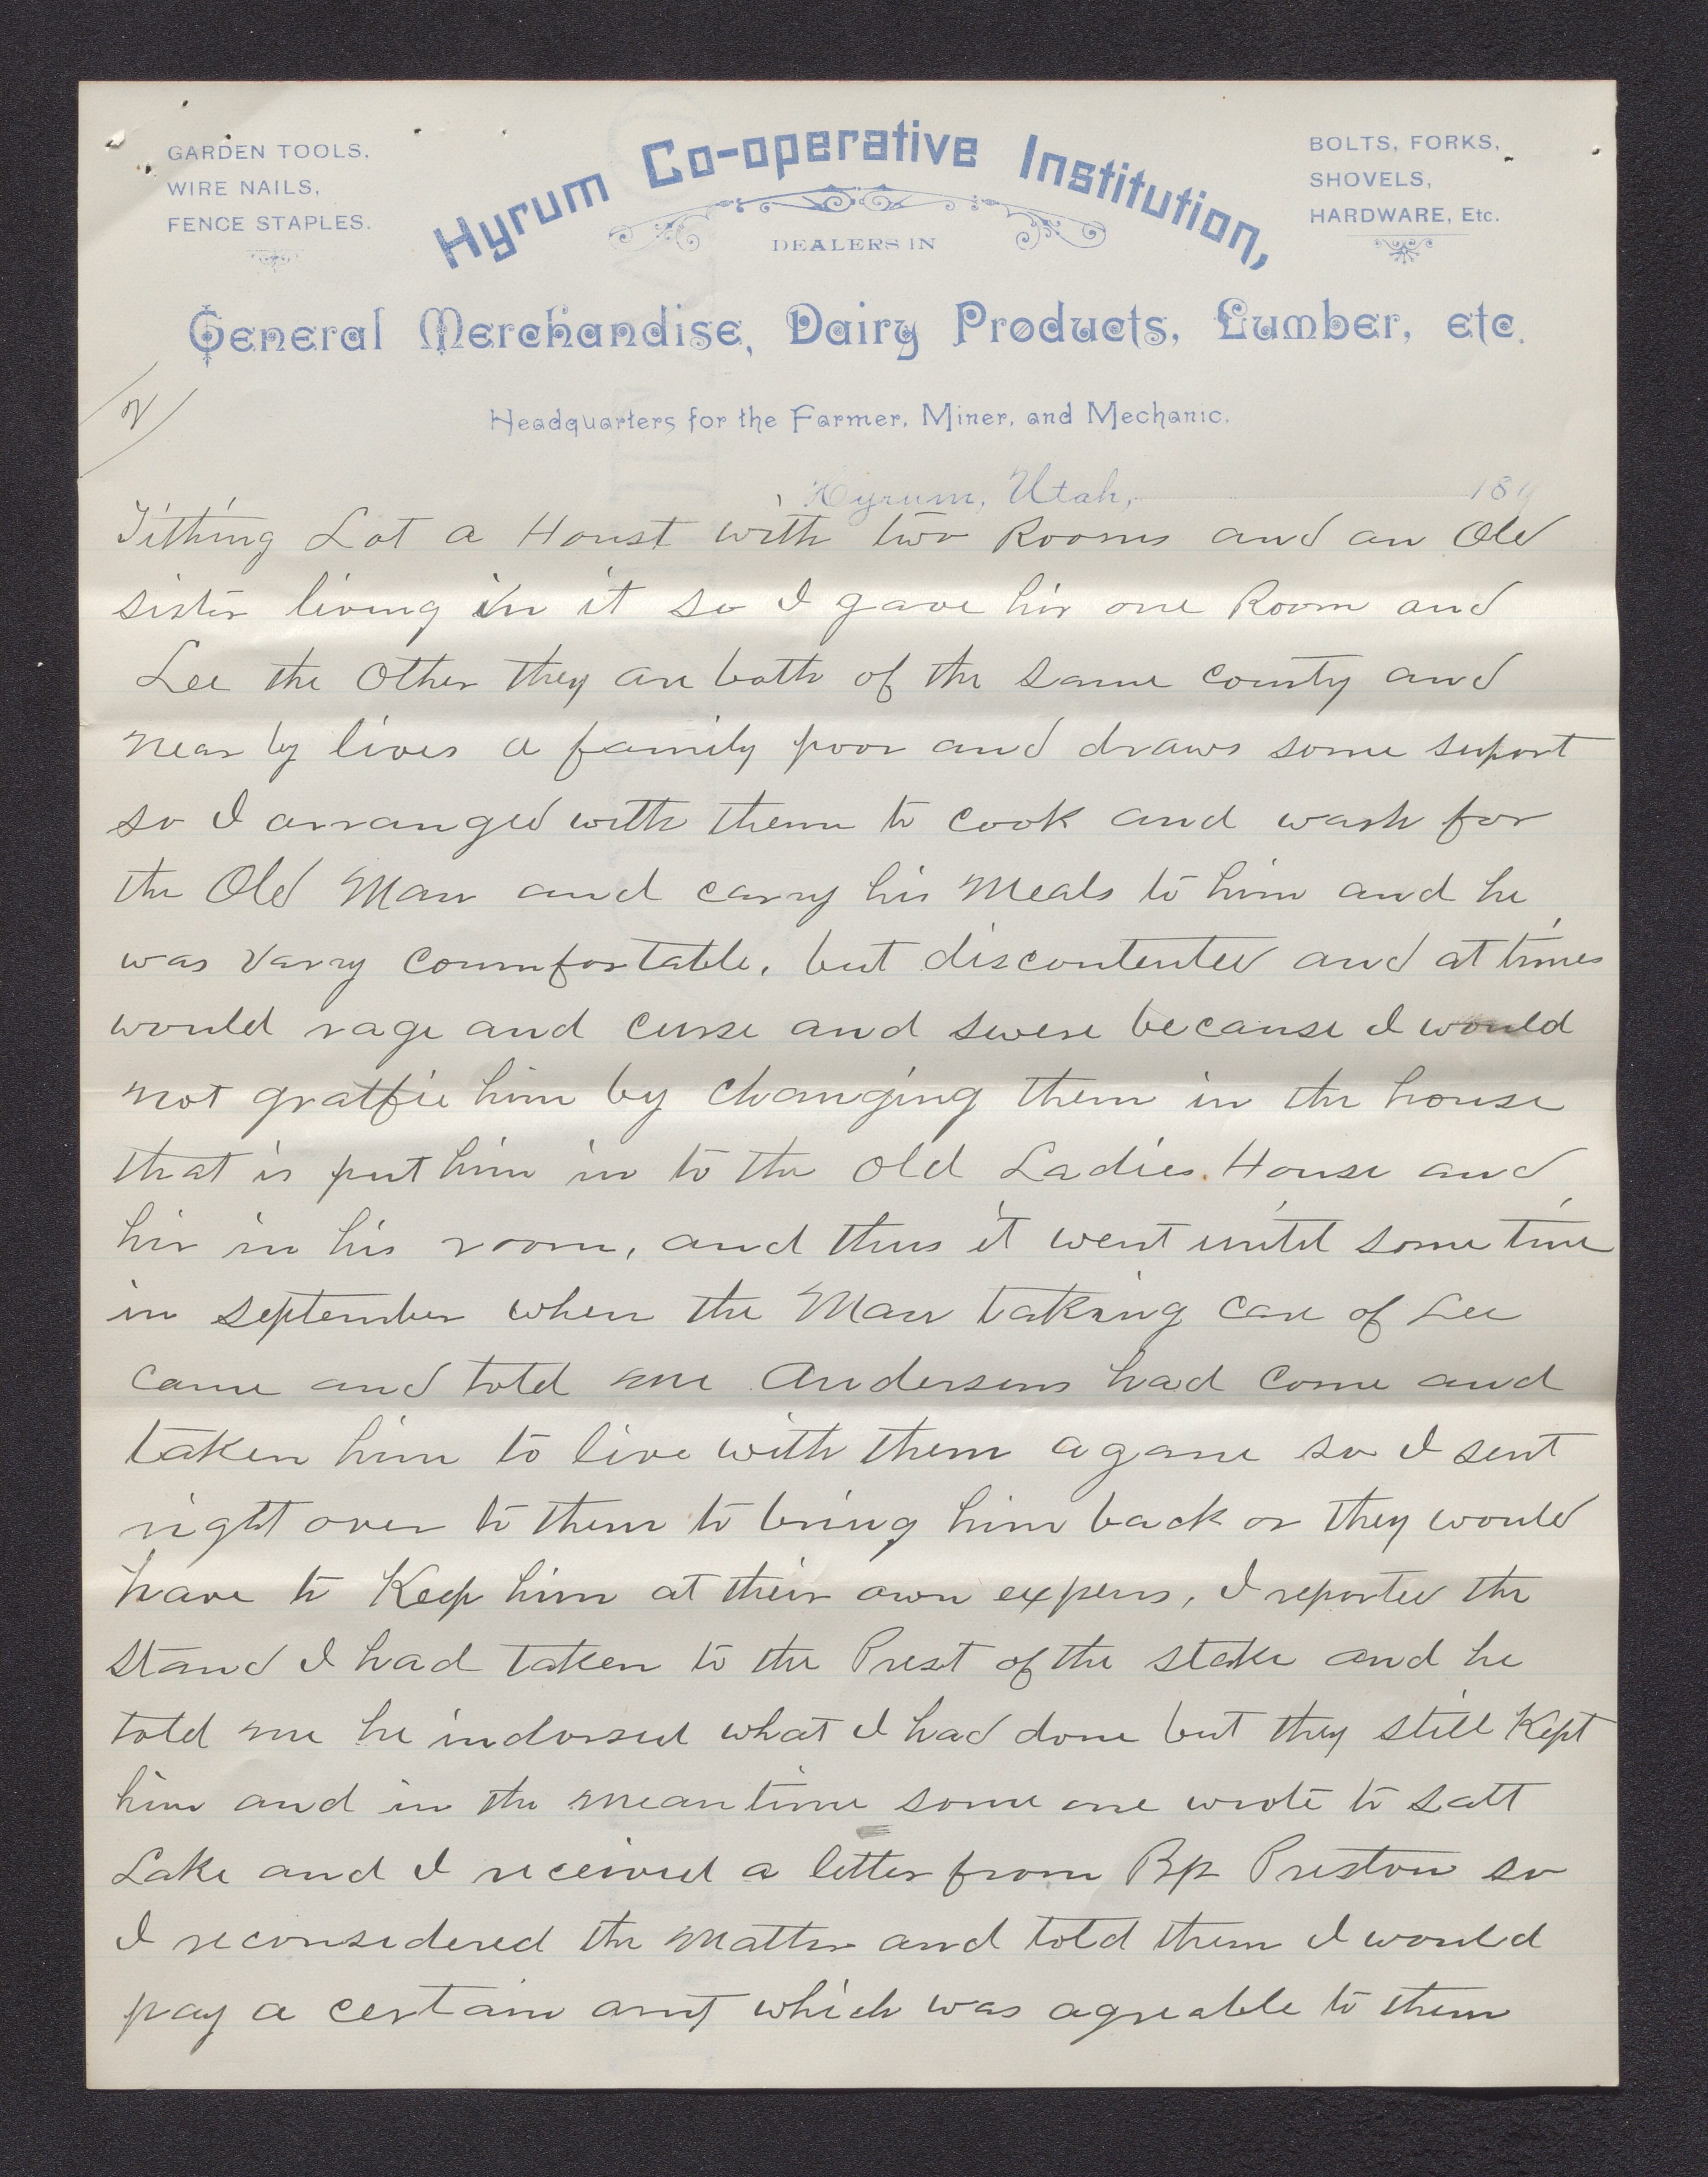 GARDEN TOOLS,
WIRE NAILS,
FENCE STAPLES.
Hyrum Co-operative Institution,
DEALERS IN
BOLTS, FORKS,
SHOVELS,
HARDWARE, Etc.
General Merchandise, Dairy Products, Lumber, etc.
Headquarters for the Farmer, Miner, and Mechanic.
2
Hyrum, Utah, 189
Tithing Lot a Houst with two Rooms and an Old
sister living in it so I gave hir one Room and
Lee the Other they are both of the same county and
near by lives a family poor and draws some suport
so I arranged with them to cook and wash for
the Old Man and carry his Meals to him and he
was varry commfortable, but discontented and at times
would rage and curse and swere because I would
not gratfie him by changing them in the house
that is put him in to the old Ladies House and
hir in his room, and thus it went until some time
in september when the Man taking care of Lee
came and told me Andersens had come and
taken him to live with them agane so I sent
right over to them to bring him back or they would
have to Keep him at their own expens, I reported the
stand I had taken to the Prest of the stake and he
told me he indorsed what I had done but they still Kept
him and in the mean time some one wrote to Salt
Lake and I received a letter from Bp Preston so
I reconsidered the matter and told them I would
pay a certain amt which was agreable to them